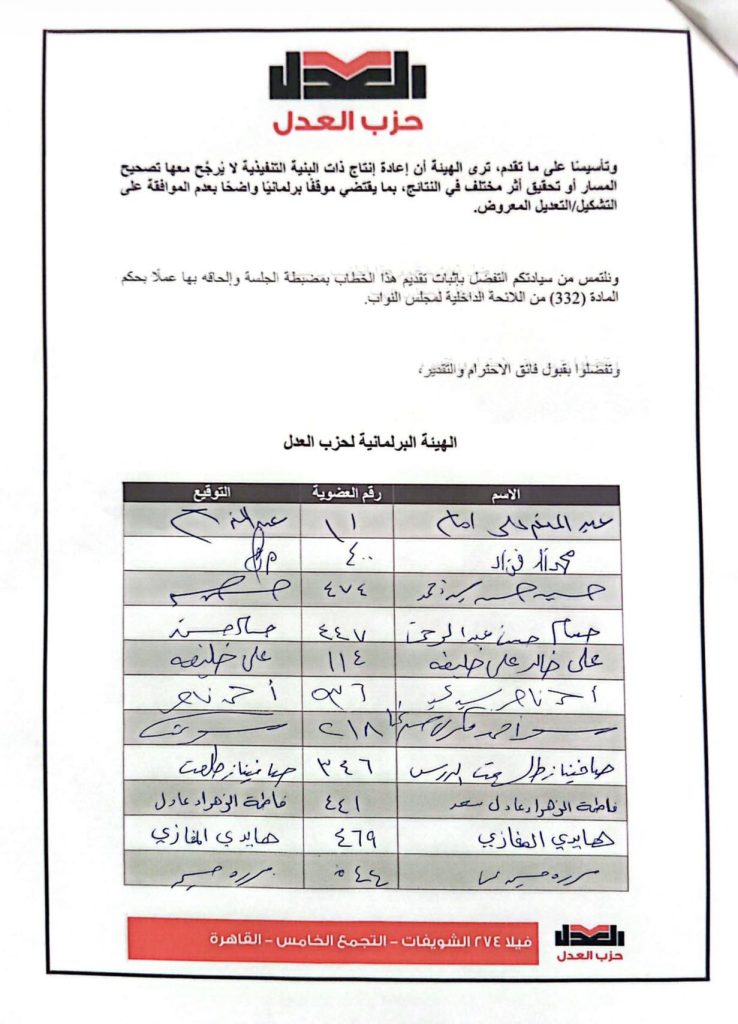 العدل
حزب العدل
وتأسيسًا على ما تقدم، ترى الهيئة أن إعادة إنتاج ذات البنية التنفيذية لا يُرجَّح معها تصحيح
المسار أو تحقيق أثر مختلف في النتائج، بما يقتضي موقفًا برلمانيًا واضحًا بعدم الموافقة على
التشكيل/التعديل المعروض.
ونلتمس من سيادتكم التفضل بإثبات تقديم هذا الخطاب بمضبطة الجلسة وإلحاقه بها عملًا بحكم
المادة (332) من اللائحة الداخلية لمجلس النواب.
وتفضلوا بقبول فائق الاحترام والتقدير،
الهيئة البرلمانية لحزب العدل
الاسم رقم العضوية التوقيع
عبد المنعم على امام ١١
محمد فؤاد ٤٠٠
حسين ٤٧٤
حسام حسن عبد الرحمن ٤٤٧ حسام حسن
على خالد على خليفه ١١٤ على خليفه
أحمد ناصر سيد ٥٣٦ أحمد ناصر
أحمد ٢١٨
صافيناز طلعت ٣٤٦ صافيناز طلعت
فاطمة الزهراء عادل سعد ٤٤١ فاطمة الزهراء عادل
هايدي المغازي ٤٦٩ هايدي المغازي
حسين ٥٤٤
العدل
حزب العدل
فيلا ٢٧٤ الشويفات - التجمع الخامس - القاهرة